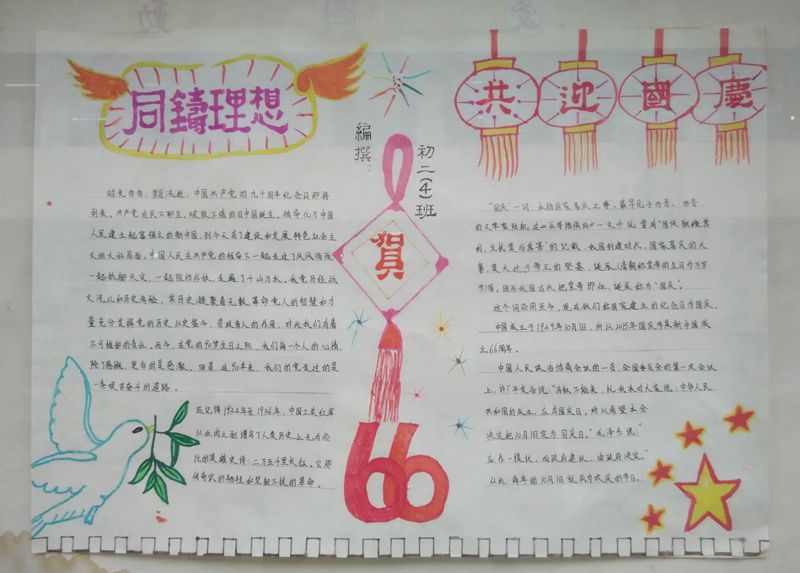 同鑄理想
時光荏苒,
中国共产党的九十周年纪念日即将
到来。共产党在民不聊生、
的旧中国诞生,领导亿万中国
人民建立起富强主的新中国,到今天有了建设和发展特色社会主
义的大好局面,中国人民在共产党的领导下一起走过了风风雨雨,
一起抗
天灾,一起阻挡
走遍了千山万水。我党历经战
火洗礼和历史考验,其历史凝聚着无数革命党人的智慧和力
量
对此我们有着
不可推卸的责任。而今,在党的90岁生日之际,我们每一个人的心情
除了感慨,更多的是感激。回首这90年来,我们的党走过的是
一条艰苦奋斗的道路。
还记得1934年至1936年,中国工农红军
谱写了人类历史上无与伦
比的英雄史诗:二万五千里长征。它那
和坚韧不拔的革命。
編撰:
初二(4)班
賀
66
共迎國慶
"国庆"一词,本指国家喜庆之事,最早见于西晋。西晋
的文学家陆机在《五等诸侯论》一文中就曾有"国庆独飨其
利,主忧莫与其害"的记载,我国封建时代,国家喜庆的大
事,莫大过于帝王的登基、诞辰(清朝称皇帝的生日为万岁
节)等,因而我国古代把皇帝即位、诞辰称为"国庆"。
这个词沿用至今,现在我们称国家建立的纪念日为国庆。
中国成立于1949年10月1日,所以2015年国庆节是新中国成
立66周年。
中国人民政治协商会议的一员,全国委员会的第一次会议
上,许广平发言说:"马叙不能来,托我来对大家说:中华人民
共和国的成立,应有国庆日,所以希望本会
决定把10月1日定为国庆日。"毛泽东说:
应作一提议,向政府建议,由政府决定。"
从此,每年的10月1日就成为欢庆的节日。